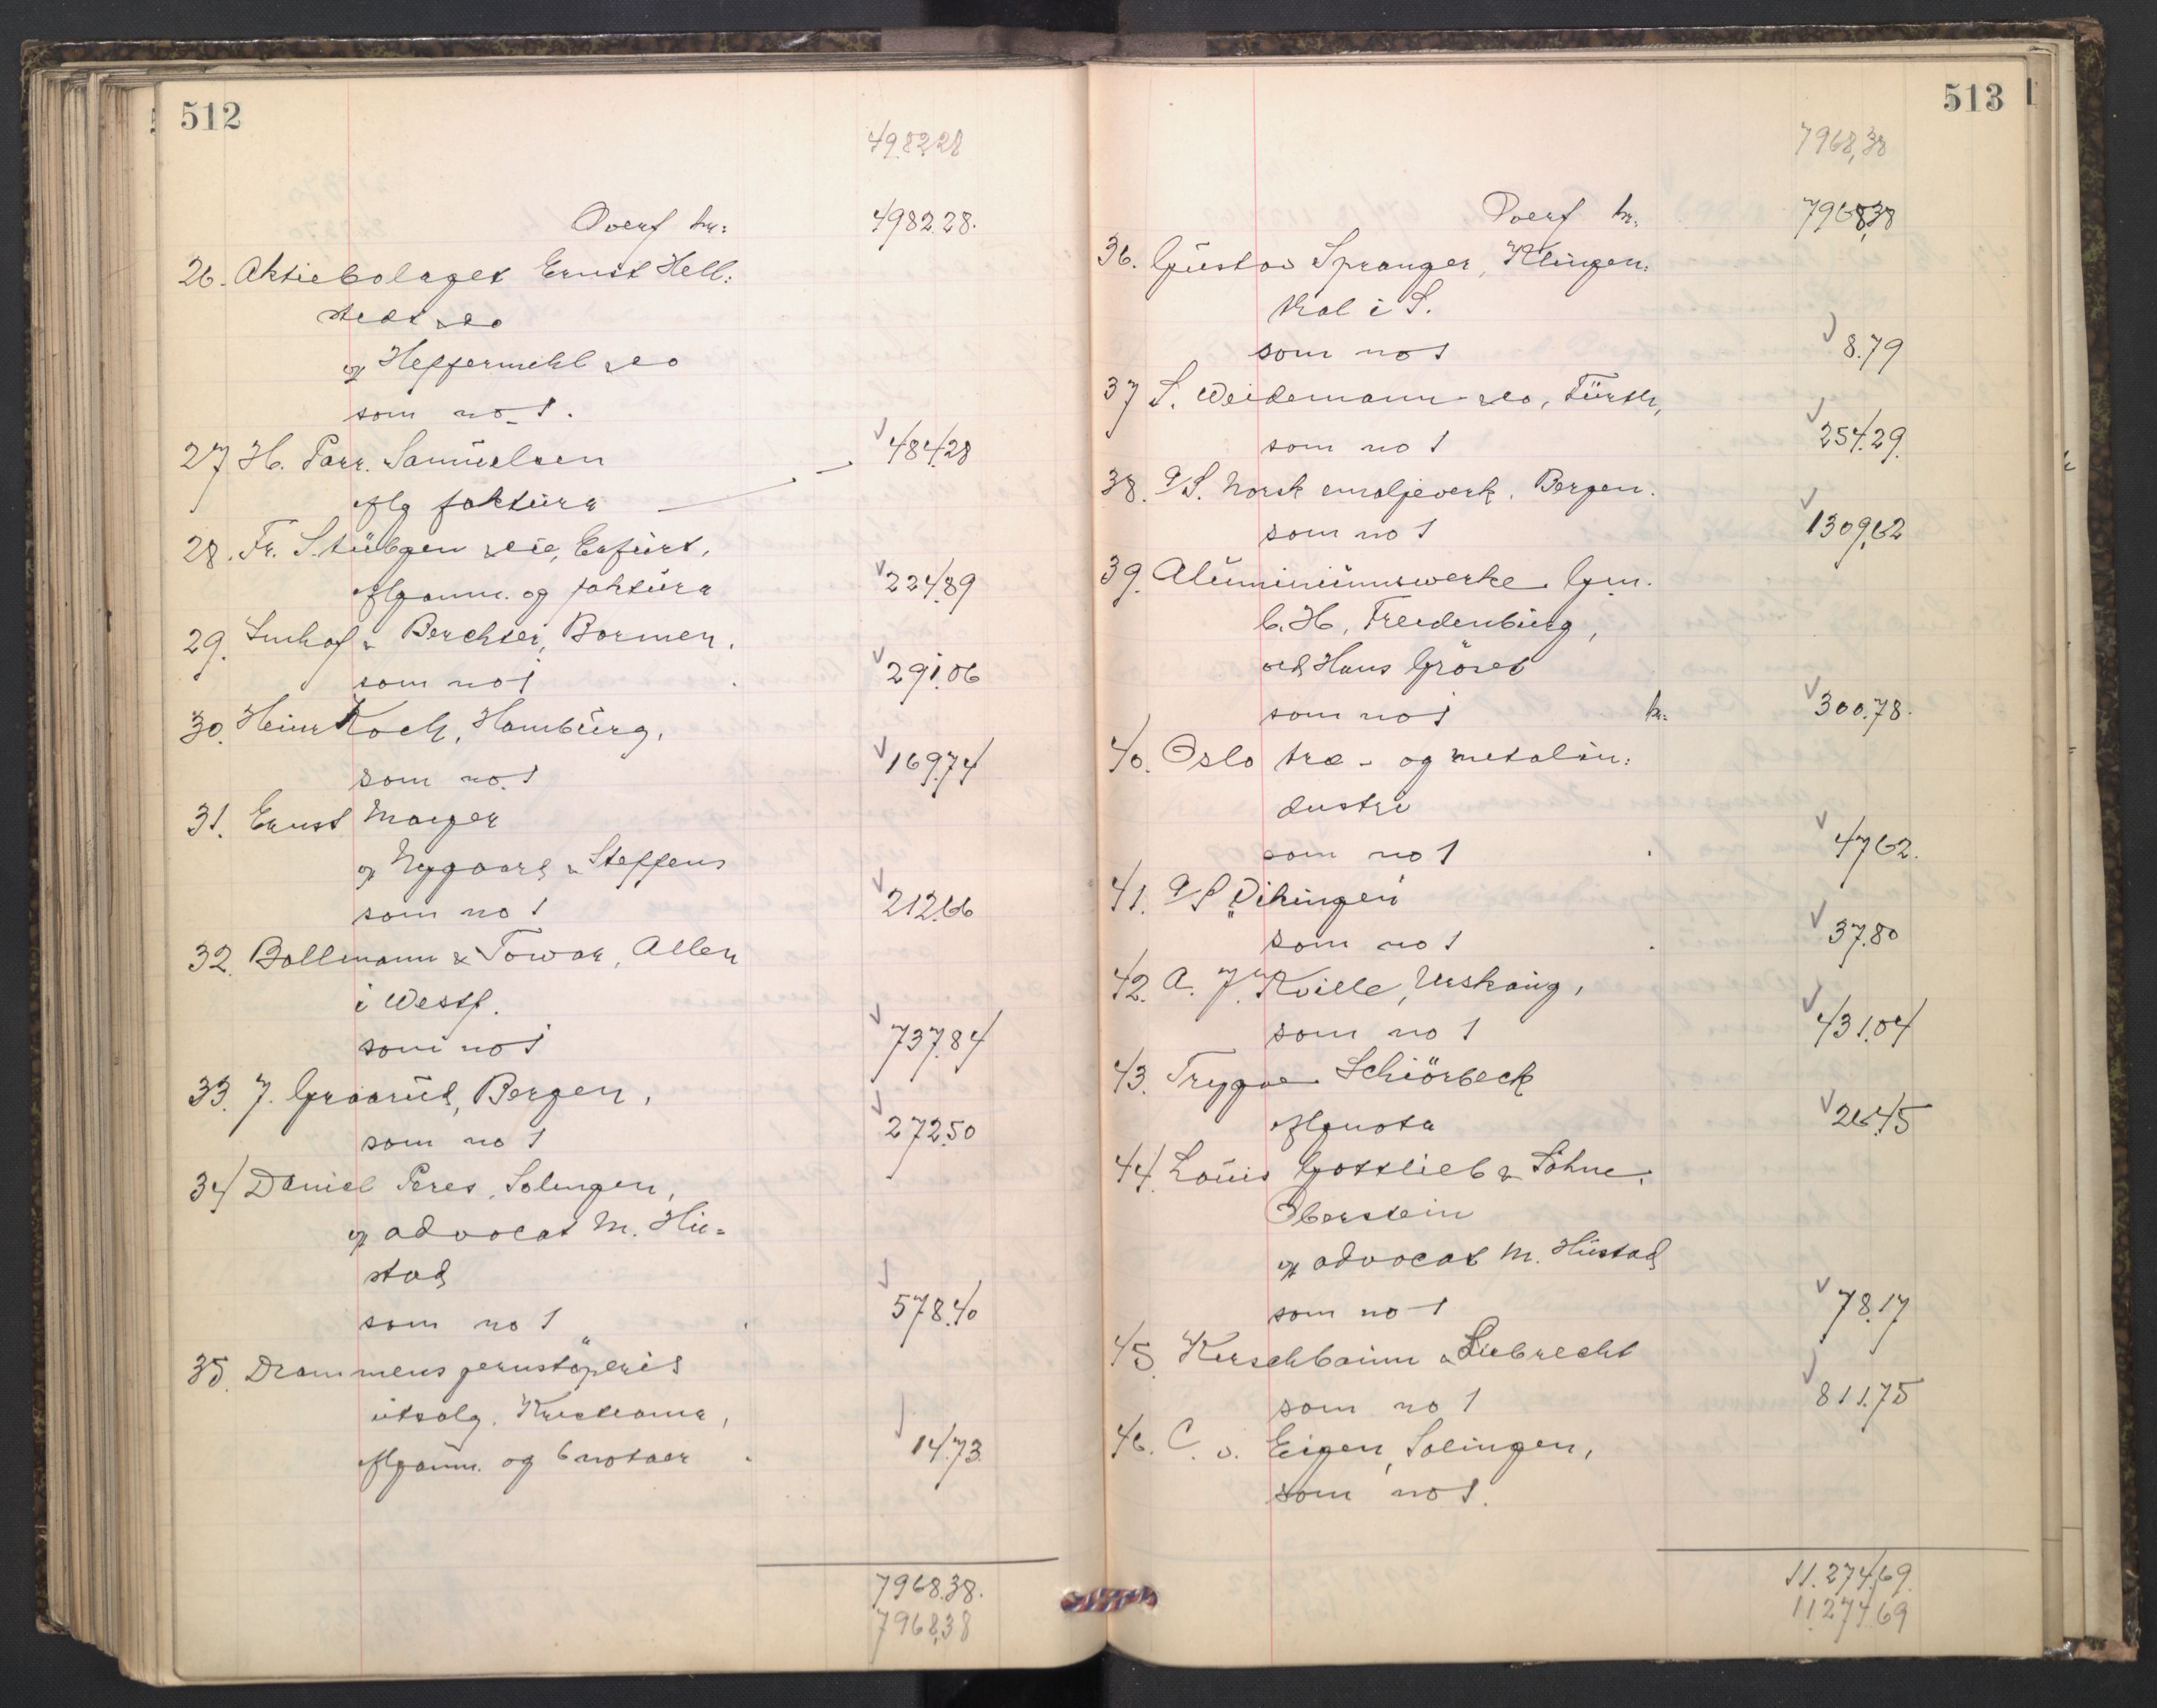 512
4982,28
Overf kr: 4982.28.
26. Aktiebolaget Ernst Hell:
stedt & co
og Heffermehl & co
som no 1.
27 H. Parr. Samuelsen 484.28
flg faktura
28. Fr. Stübgen & cie, Erfurt,
flg anm. og faktura 224.89
29. Imhof & Berchter, Barmen.
som no 1 291.06
30. Heinr Koch, Hamburg,
som no 1 169.74
31. Ernst Mayer
og Nygaard & Steffens
som no 1 212.66
32. Ballmann & Towar, Allen
i Westf.
som no 1 737.84
33. J. Graarud, Bergen,
som no 1 272.50
34 Daniel Peres, Solingen,
og advocat M. Hu=
stad
som no 1 578.40
35. Drammens jernstøperis
utsalg, Kristiania,
flg anm. og 6 notaer 14.73.
7968.38.
7968,38
513
7968,38
Overf kr. 7968,38
36. Gustav Spranger, Klingen:
thal i S.
som no 1 8.79
37 S. Weidemann & co, Fürth,
som no 1 254.29.
38. A/S. Norsk emaljeverk, Bergen.
som no 1 1309,62
39. Aluminiumswerke Gm.
b. H, Freudenburg,
ved Hans Gröset
som no 1 kr. 300.78.
40. Oslo træ- og metalin:
dustri
som no 1 47.62.
41. A/S „Vikingen"
som no 1 37.80
42. A. J. Kville, Urskaug,
som no 1 431.04
43. Trygve Schiörbeck
flg nota 26.45
44. Louis Gottlieb & Söhne,
Oberstein
og advocat M. Hustad
som no 1 78.17
45. Kirschbaum & Liebrecht
som no 1 811.75
46. C. v. Eigen, Solingen,
som no 1.
11.274.69.
11274.69